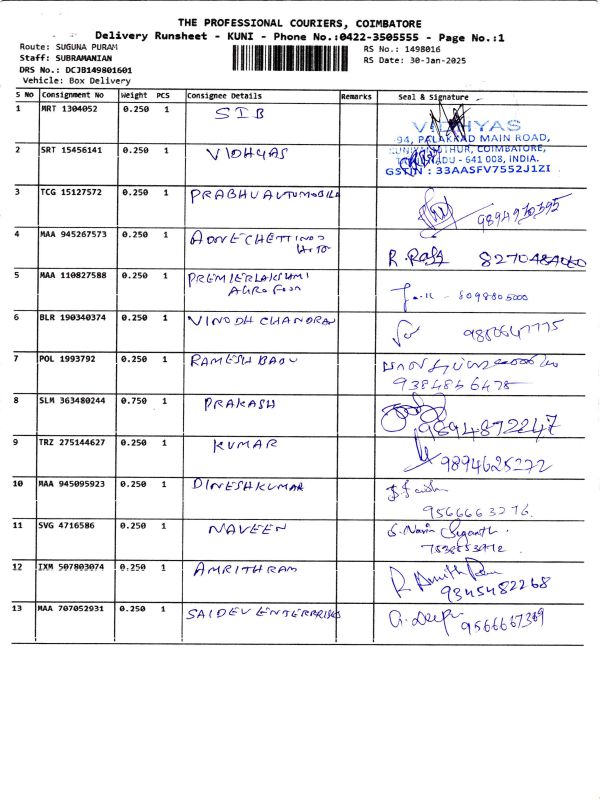 THE PROFESSIONAL COURIERS, COIMBATORE
Delivery Runsheet - KUNI - Phone No.:0422-3505555 - Page No.:1
Route: SUGUNA PURAM
RS No.: 1498016
Staff: SUBRAMANIAN
RS Date: 30-Jan-2025
DRS No.: DCJB149801601
Vehicle: Box Delivery
S No Consignment No Weight PCS Consignee Details Remarks Seal & Signature
1 MRT 1304052 0.250 1 STB
VIDHYAS
94, PALAKKAD MAIN ROAD,
KUNIYAMUTHUR, COIMBATORE,
641 008, INDIA.
GSTIN : 33AASFV7552J1ZI
2 SRT 15456141 0.250 1 VIDHYAS
3 TCG 15127572 0.250 1 PRABHU AUTOMOBILE
4 MAA 945267573 0.250 1 R. Raja
5 MAA 110827588 0.250 1 PREMIER LAKSHMI
AGRO FOOD 8098805000
6 BLR 190340374 0.250 1 VINODH CHANDRAN
7 POL 1993792 0.250 1 RAMESH BABU
9384856478
8 SLM 363480244 0.750 1 PRAKASH
9894872247
9 TRZ 275144627 0.250 1 KUMAR
9894625272
10 MAA 945095923 0.250 1 DINESHKUMAR
9566663276.
11 SVG 4716586 0.250 1 NAVEEN
12 IXM 507803074 0.250 1 AMRITHRAM
9345482268
13 MAA 707052931 0.250 1 SAIDEV ENTERPRISES
G. Deepa
9566667369